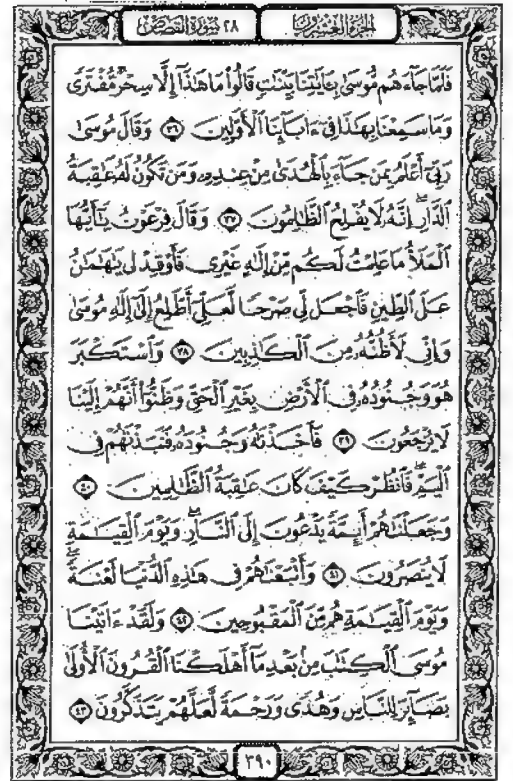 الجزء العشرون
٢٨ سورة القصص
فَلَمَّا جَآءَهُم مُّوسَىٰ بِـَٔايَـٰتِنَا بَيِّنَـٰتٍ قَالُوا۟ مَا هَـٰذَآ إِلَّا سِحْرٌ مُّفْتَرًى
وَمَا سَمِعْنَا بِهَـٰذَا فِىٓ ءَابَآئِنَا ٱلْأَوَّلِينَ ٣٦ وَقَالَ مُوسَىٰ
رَبِّىٓ أَعْلَمُ بِمَن جَآءَ بِٱلْهُدَىٰ مِنْ عِندِهِۦ وَمَن تَكُونُ لَهُۥ عَـٰقِبَةُ
ٱلدَّارِ ۖ إِنَّهُۥ لَا يُفْلِحُ ٱلظَّـٰلِمُونَ ٣٧ وَقَالَ فِرْعَوْنُ يَـٰٓأَيُّهَا
ٱلْمَلَأُ مَا عَلِمْتُ لَكُم مِّنْ إِلَـٰهٍ غَيْرِى فَأَوْقِدْ لِى يَـٰهَـٰمَـٰنُ
عَلَى ٱلطِّينِ فَٱجْعَل لِّى صَرْحًا لَّعَلِّىٓ أَطَّلِعُ إِلَىٰٓ إِلَـٰهِ مُوسَىٰ
وَإِنِّى لَأَظُنُّهُۥ مِنَ ٱلْكَـٰذِبِينَ ٣٨ وَٱسْتَكْبَرَ
هُوَ وَجُنُودُهُۥ فِى ٱلْأَرْضِ بِغَيْرِ ٱلْحَقِّ وَظَنُّوٓا۟ أَنَّهُمْ إِلَيْنَا
لَا يُرْجَعُونَ ٣٩ فَأَخَذْنَـٰهُ وَجُنُودَهُۥ فَنَبَذْنَـٰهُمْ فِى
ٱلْيَمِّ ۖ فَٱنظُرْ كَيْفَ كَانَ عَـٰقِبَةُ ٱلظَّـٰلِمِينَ ٤٠
وَجَعَلْنَـٰهُمْ أَئِمَّةً يَدْعُونَ إِلَى ٱلنَّارِ ۖ وَيَوْمَ ٱلْقِيَـٰمَةِ
لَا يُنصَرُونَ ٤١ وَأَتْبَعْنَـٰهُمْ فِى هَـٰذِهِ ٱلدُّنْيَا لَعْنَةً ۖ
وَيَوْمَ ٱلْقِيَـٰمَةِ هُم مِّنَ ٱلْمَقْبُوحِينَ ٤٢ وَلَقَدْ ءَاتَيْنَا
مُوسَى ٱلْكِتَـٰبَ مِنۢ بَعْدِ مَآ أَهْلَكْنَا ٱلْقُرُونَ ٱلْأُولَىٰ
بَصَآئِرَ لِلنَّاسِ وَهُدًى وَرَحْمَةً لَّعَلَّهُمْ يَتَذَكَّرُونَ ٤٣
٣٩٠